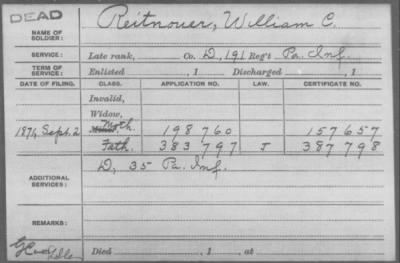 DEAD
NAME OF SOLDIER: Reitnouer, William C.
SERVICE: Late rank, Co. D, 191 Reg't Pa. Inf.
TERM OF SERVICE: Enlisted , 1 Discharged , 1
DATE OF FILING. CLASS. APPLICATION NO. LAW. CERTIFICATE NO.
Invalid,
Widow,
1874, Sept. 2 Moth. 198 760 157 657
Fath. 383 797 J 387 798
ADDITIONAL SERVICES: D, 35 Pa. Inf.
REMARKS:
Died , 1 , at